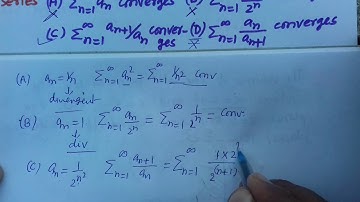 series (A) Σₙ₌₁^∞ aₙ converges (B) Σₙ₌₁^∞ 2ⁿ
(C) Σₙ₌₁^∞ aₙ₊₁/aₙ conver-ges (D) Σₙ₌₁^∞ aₙ/aₙ₊₁ converges
(A) aₙ = 1/n Σₙ₌₁^∞ aₙ² = Σₙ₌₁^∞ 1/n² conv
↓
divergent
(B) aₙ = 1 Σₙ₌₁^∞ aₙ/2ⁿ = Σₙ₌₁^∞ 1/2ⁿ = Conv
↓
div
(C) aₙ = 1/2^(n²) Σₙ₌₁^∞ aₙ₊₁/aₙ = Σₙ₌₁^∞ 1×2/2^(n+1)